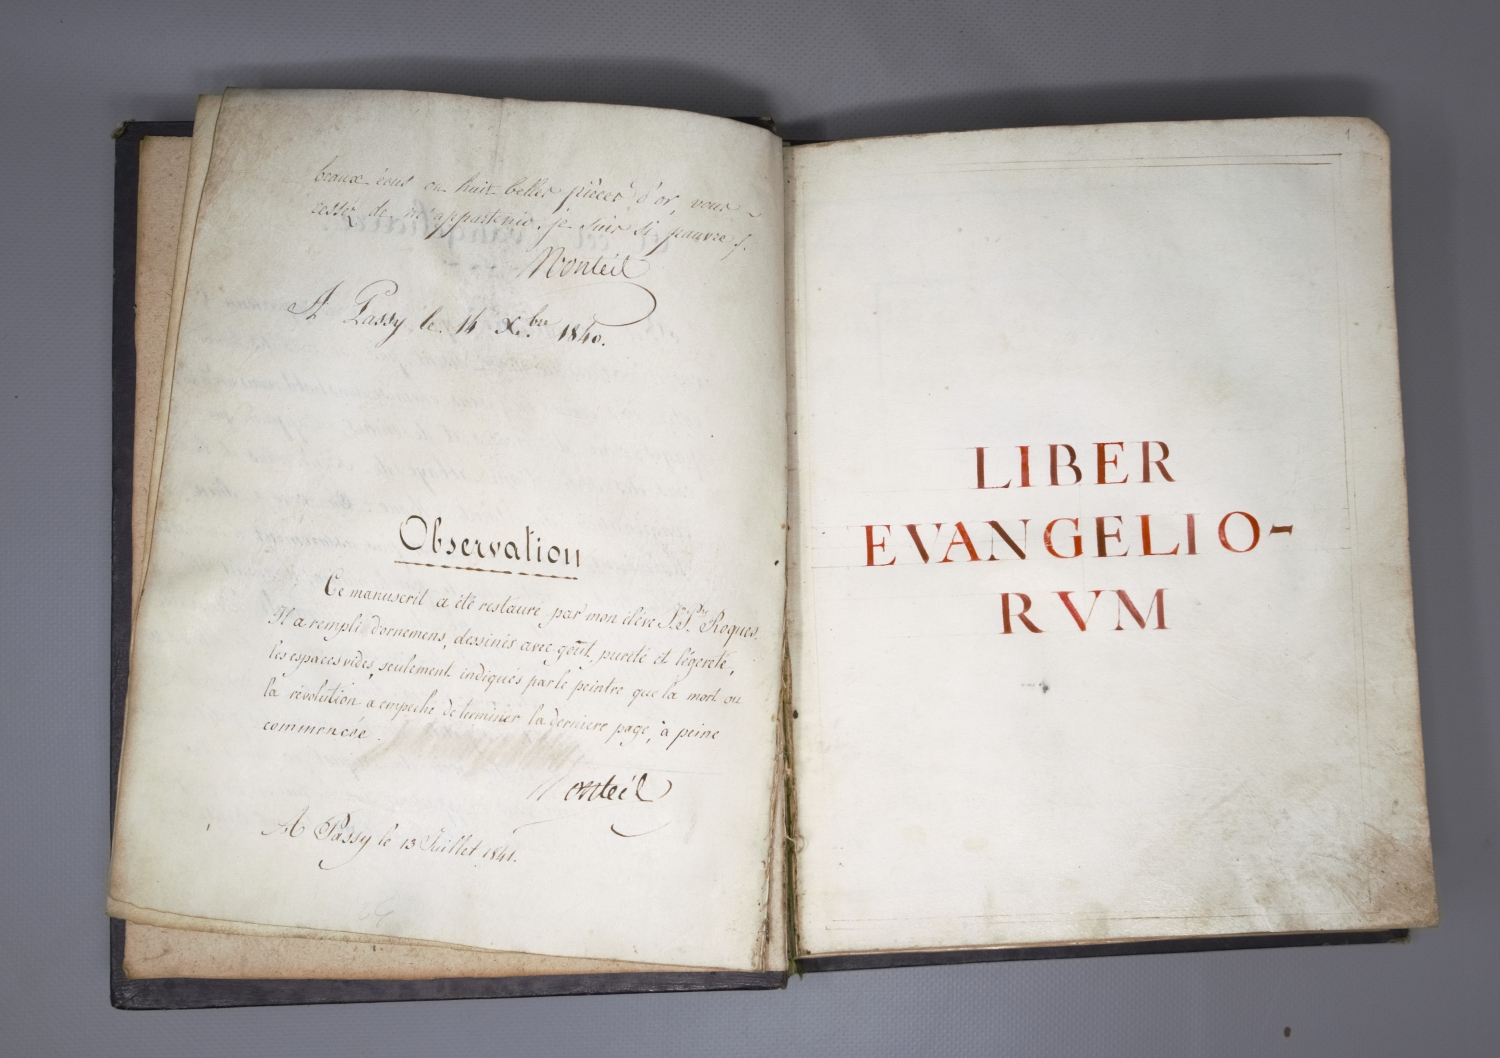 beaux écus ou huit belles pièces d'or, vous
cessé de m'appartenir. je suis si pauvre !.
Monteil
A Passy le 14 X.bre 1840.
Observation
Ce manuscrit a été restauré par mon élève J.Pre Roques.
Il a rempli d'ornemens, dessinés avec goût, pureté et légereté,
les espaces vides, seulement indiqués par le peintre que la mort ou
la révolution a empeché de terminer la derniere page, à peine
commencée.
Monteil
A Passy le 13 Juillet 1841.
1
LIBER
EVANGELIO-
RVM